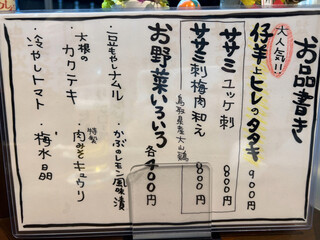 お品書き
大人気!!
仔羊上ヒレのタタキ 900円
ササミユッケ刺 800円
ササミ刺梅肉和え 800円
鳥取県産大山鶏
お野菜いろいろ 各400円
・豆もやしナムル
・かぶのレモン風味漬
・大根のカクテキ
・特製肉みそキュウリ
・冷やしトマト
・梅水晶